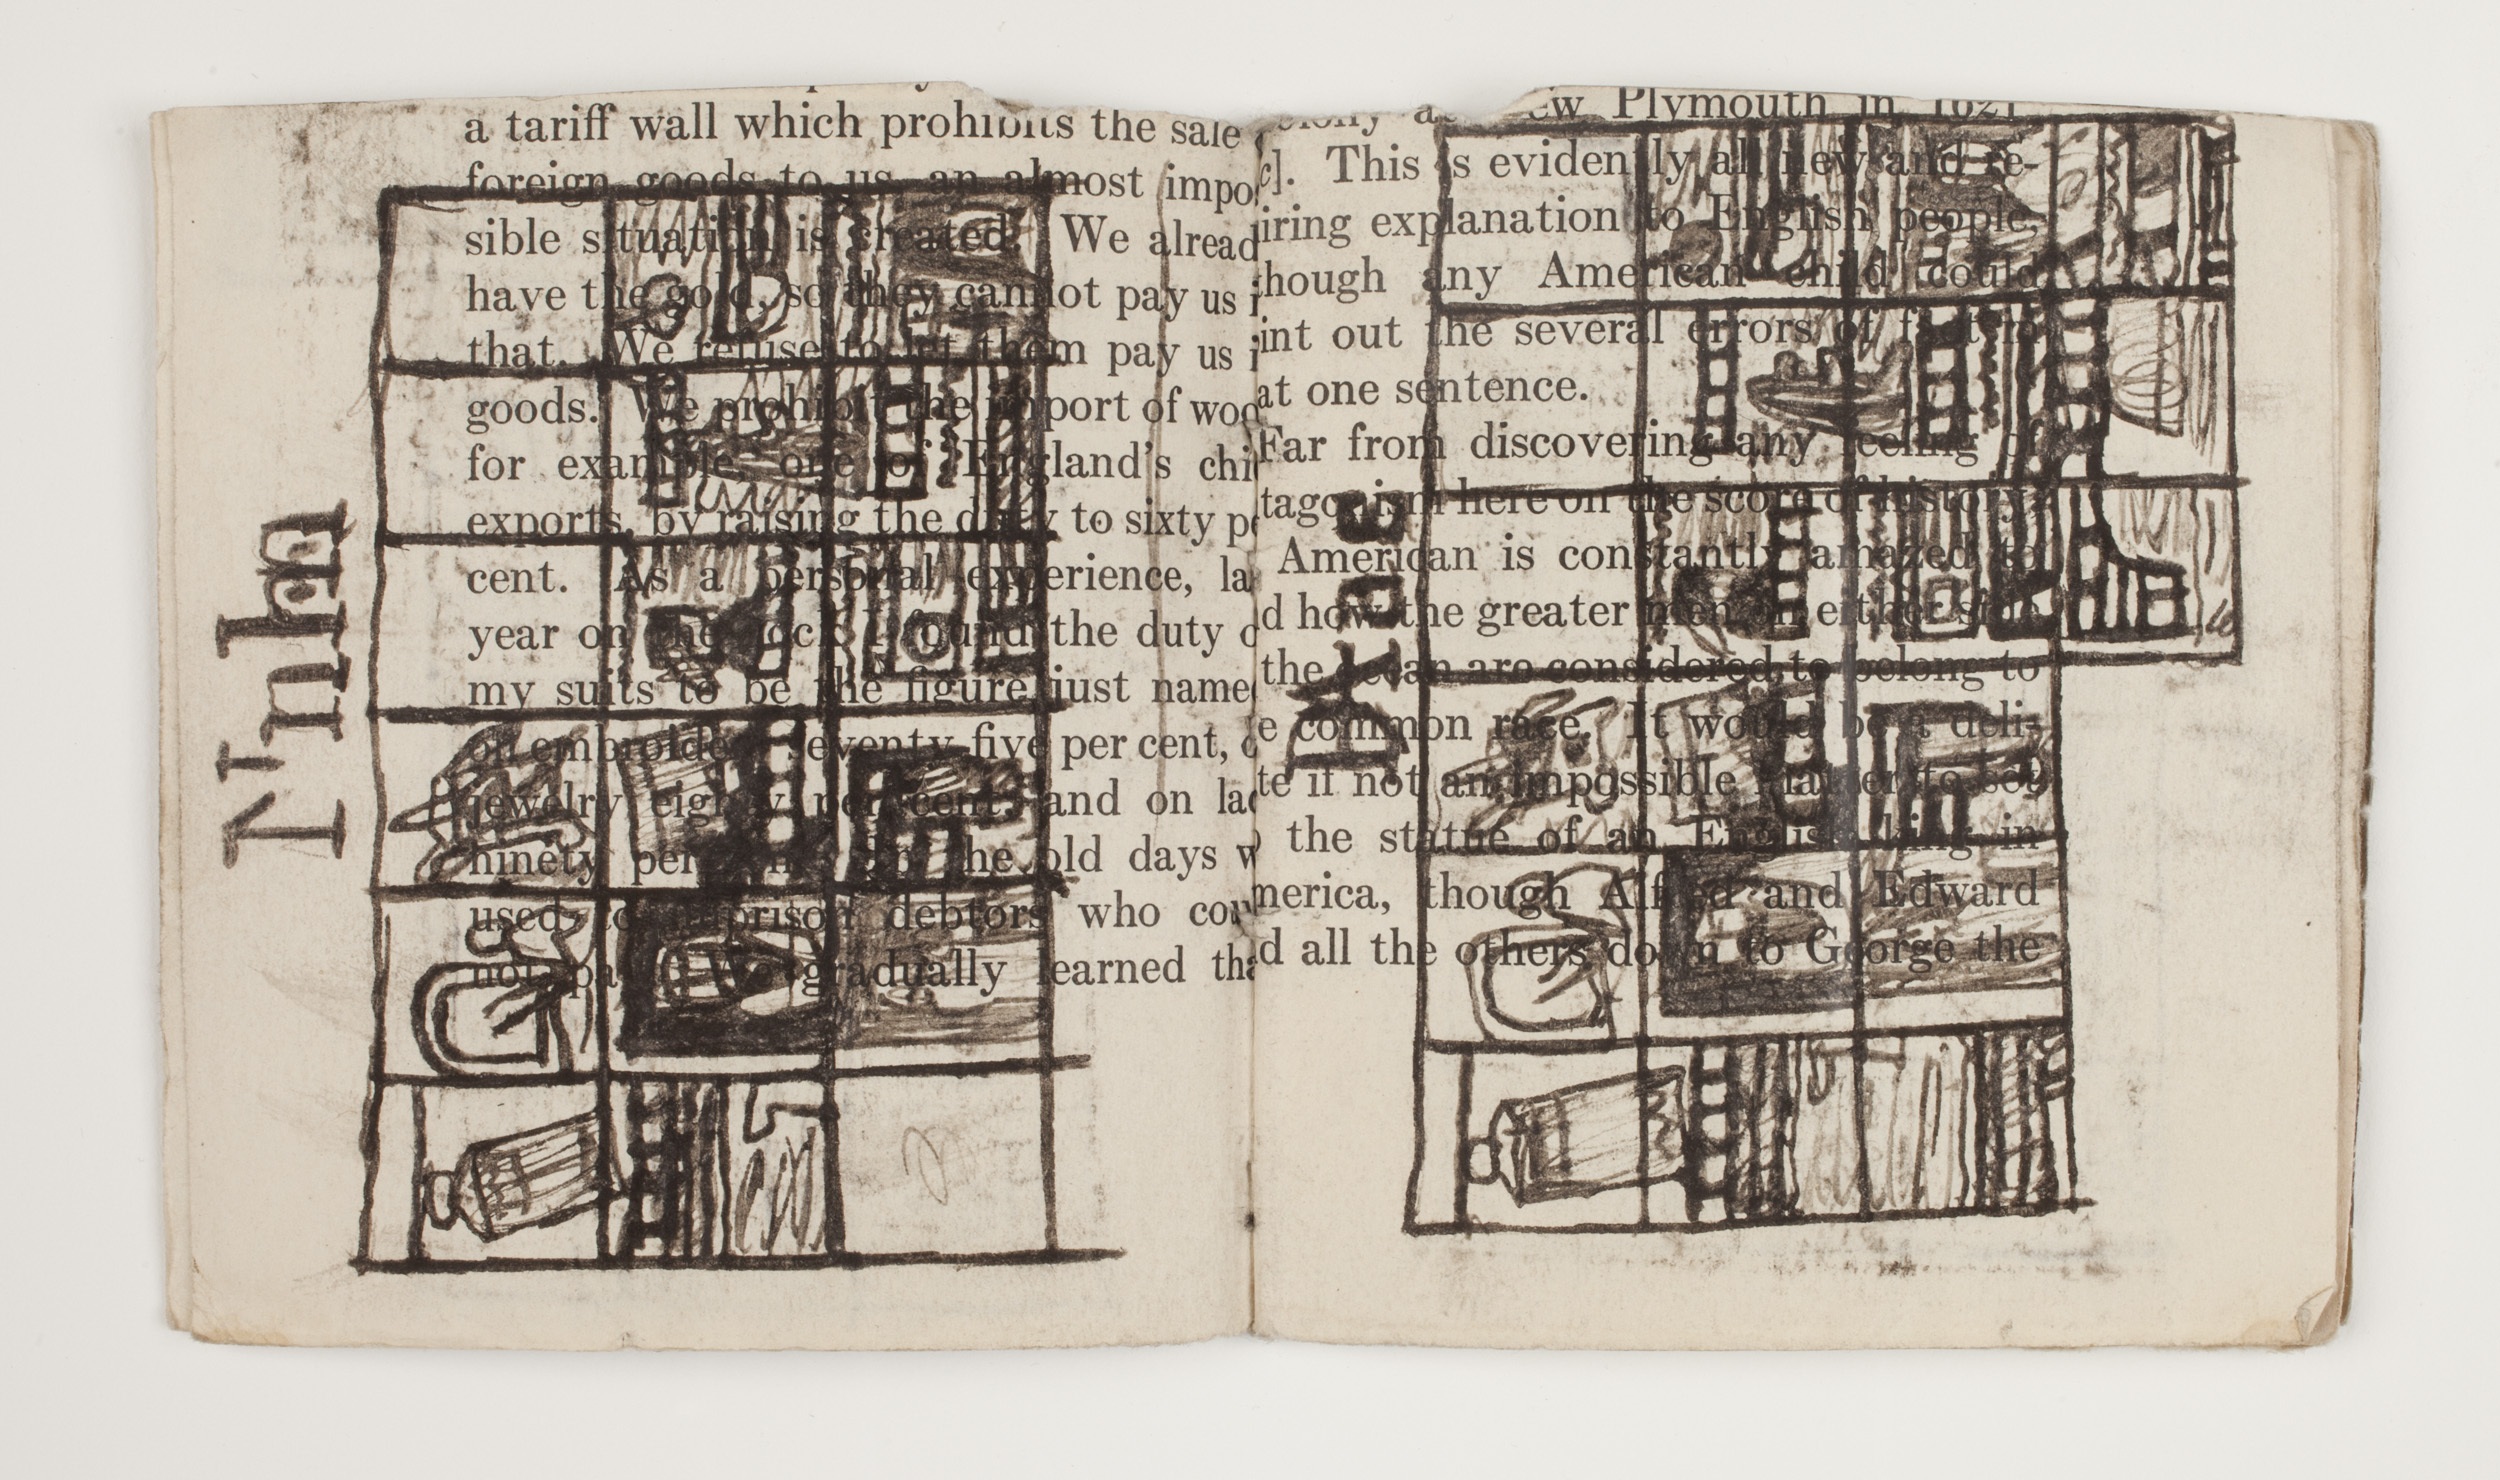 a tariff wall which prohibits the sale
foreign goods to us, an almost impo
sible situation is created. We alread
have the gold, so they cannot pay us i
that. We refuse to let them pay us i
goods. We prohibit the import of woo
for example, one of England's chi
exports, by raising the duty to sixty pe
cent. As a personal experience, la
year on the dock I found the duty o
my suits to be the figure just name
on embroidery seventy-five per cent, o
jewelry eighty per cent, and on lac
ninety per the old days w
used to imprison debtors who cou
not pay. We gradually learned tha
ew Plymouth in 1621
c]. This is evidently all new and re-
iring explanation to English people,
hough any American child could
int out the several errors of fact in
at one sentence.
Far from discovering any feeling of
tagonism here on the score of history,
American is constantly amazed to
d how the greater men on either side
the ocean are considered to belong to
e common race. It would be a deli-
te if not an impossible matter to set
the statue of an English king in
merica, though Alfred and Edward
d all the others down to George the